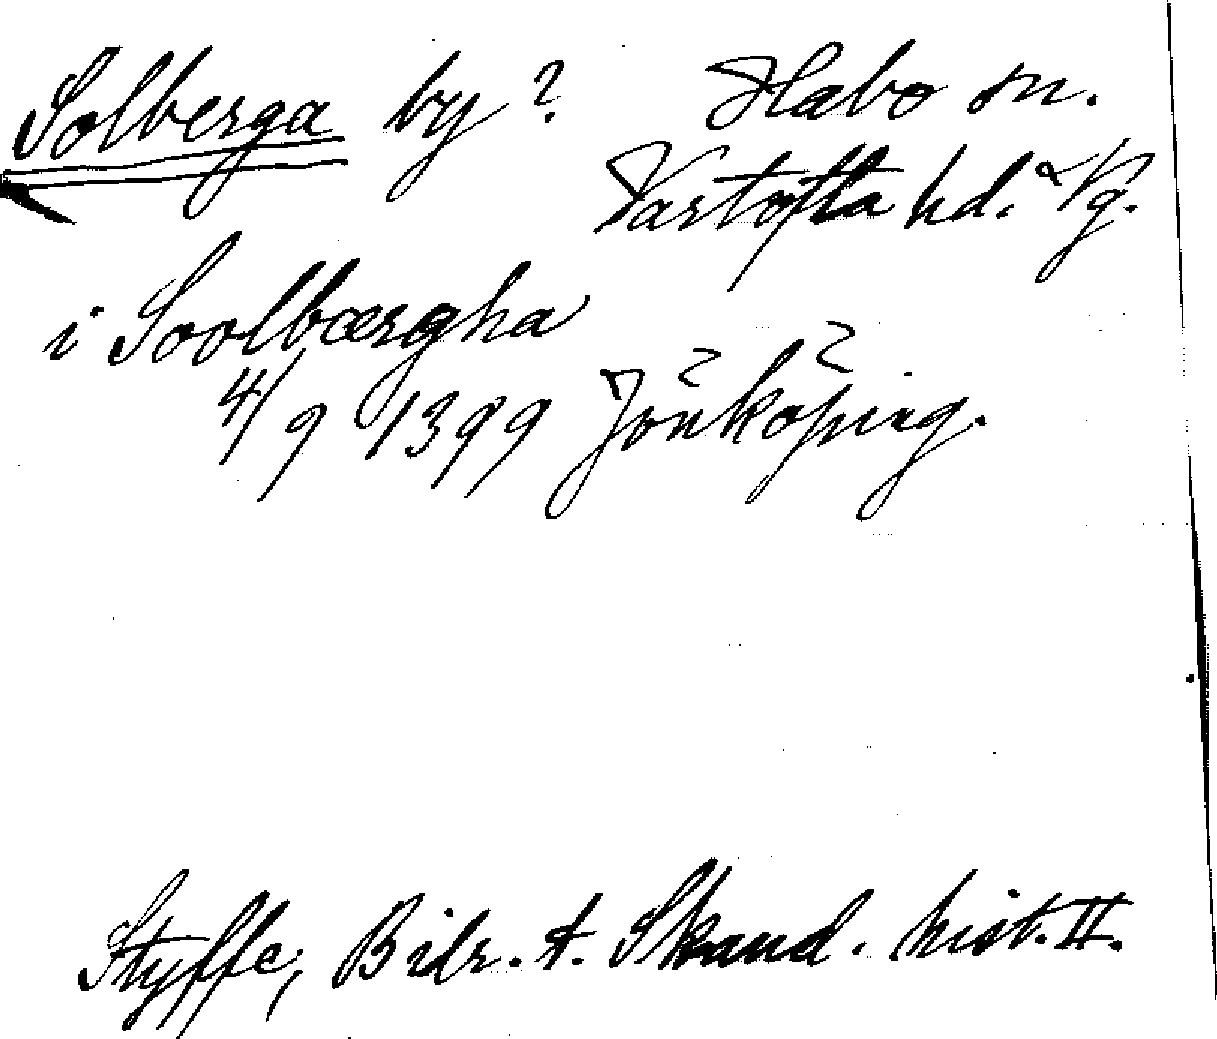 Solberga by? Habo sn.
Vartofta hd. Vg.
i Soolbærgha
4/9 1399 Jönköping.
Styffe, Bidr. t. Skand. hist. II.